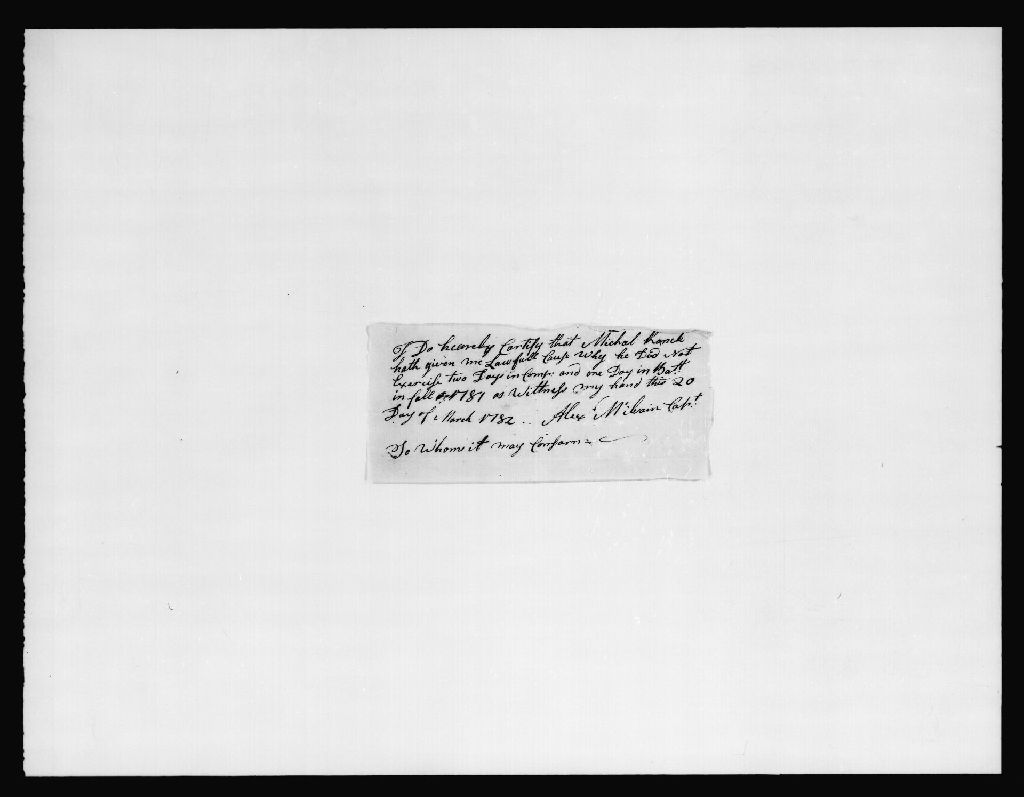 I Do heareby Certify that Michal Ranck
hath given me Lawfull Caus Why he Did Not
Exercise two Days in Comp: and one Day in Batt
in fall 1781 as Wittness my hand this 20
Day of March 1782 .. Alexr McIlvain Capt
To Whome it may Consarn